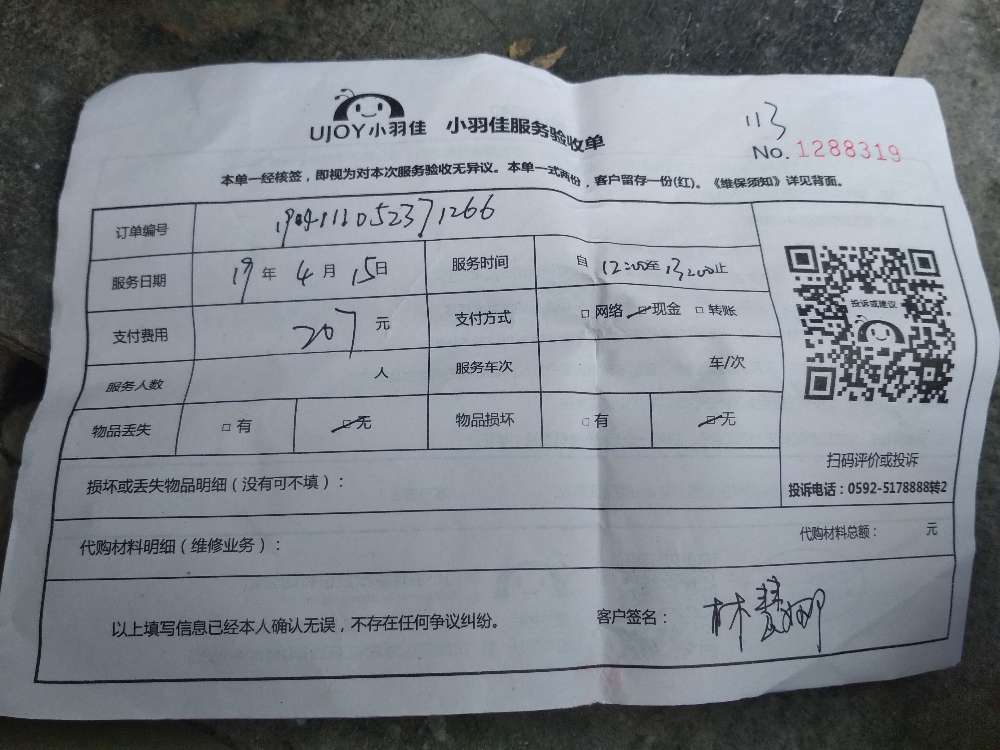 UJOY小羽佳 小羽佳服务验收单
113
No. 1288319
本单一经核签，即视为对本次服务验收无异议。本单一式两份，客户留存一份(红)。《维保须知》详见背面。
订单编号
服务日期 19 年 4 月 15 日 服务时间 自 12:00 至 13:00 止
支付费用 207 元 支付方式 □ 网络 □ 现金 □ 转账
投诉或建议
服务人数 人 服务车次 车/次
物品丢失 □ 有 □ 无 物品损坏 □ 有 □ 无
扫码评价或投诉
投诉电话：0592-5178888转2
损坏或丢失物品明细（没有可不填）：
代购材料明细（维修业务）： 代购材料总额： 元
以上填写信息已经本人确认无误，不存在任何争议纠纷。 客户签名： 林慧娜